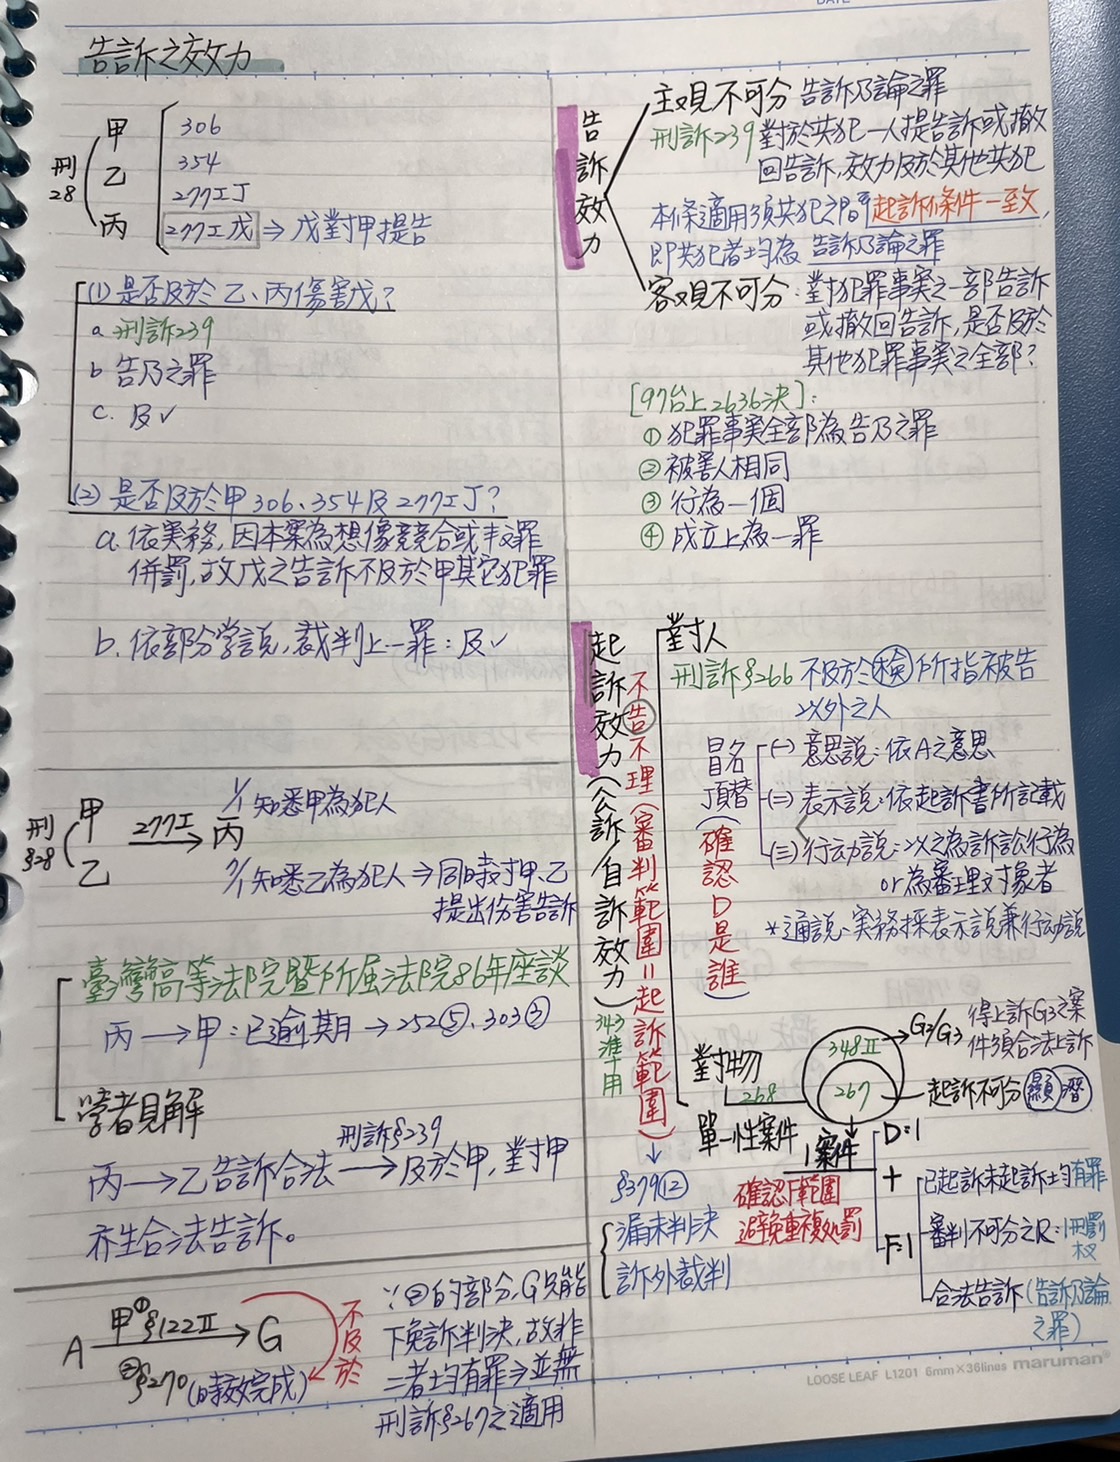 DATE
告訴之效力
刑28
甲
乙
丙
306
354
277I丁
277I戊 ⇒ 戊對甲提告
(1) 是否及於乙、丙傷害戊?
a 刑訴239
b 告乃之罪
c. 及✓
(2) 是否及於甲306、354及277I丁?
a. 依實務,因本案為想像競合或數罪
併罰,故戊之告訴不及於甲其它犯罪
b. 依部分學說,裁判上一罪:及✓
刑§28
甲
乙
277I
丙
1/1 知悉甲為犯人
7/1 知悉乙為犯人⇒同時對甲、乙
提出傷害告訴
臺灣高等法院暨所屬法院86年座談
丙→甲:已逾期→252⑤、303③
學者見解
丙→乙告訴合法 刑訴§239→及於甲,對甲
亦生合法告訴。
A
甲①§122II
②§270(時效完成)
G
不及於
∵②的部分,G只能
下免訴判決,故非
二者均有罪⇒並無
刑訴§267之適用
告訴效力
主觀不可分 告訴乃論之罪
刑訴239 對於共犯一人提告訴或撤
回告訴,效力及於其他共犯
本條適用須共犯之間起訴條件一致,
即共犯者均為 告訴乃論之罪
客觀不可分:對犯罪事實之一部告訴
或撤回告訴,是否及於
其他犯罪事實之全部?
[97台上2636決]:
① 犯罪事實全部為告乃之罪
② 被害人相同
③ 行為一個
④ 成立上為一罪
起訴效力(公訴/自訴效力)
343準用
不告不理(審判範圍=起訴範圍)
↓
§379⑫
漏未判決
訴外裁判
對人
刑訴§266 不及於檢所指被告
以外之人
冒名頂替(確認D是誰)
(一) 意思說:依A之意思
(二) 表示說:依起訴書所記載
(三) 行动說:以之為訴訟行為
or為審理対象者
*通說、實務採表示說兼行动說
對物
268
348II
267
G2/G3 得上訴G3之案
件須合法上訴
起訴不可分 顯 潛
單一性案件
1案件
確認F範圍
避免重複処罰
D:1
+
F:1
已起訴未起訴均有罪
審判不可分之R:1刑罰权
合法告訴(告訴乃論
之罪)
LOOSE LEAF L1201 6mm×36lines maruman®